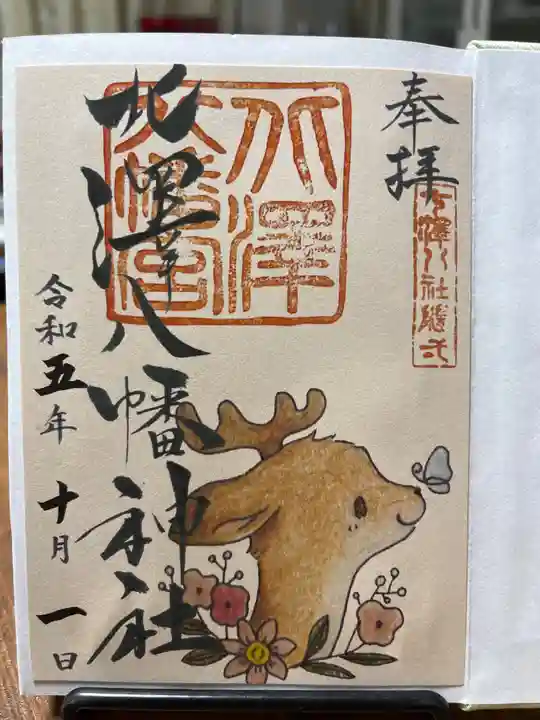 奉拝
七澤八社随弐
北澤八幡宮
北澤八幡神社
令和五年 十月 一日